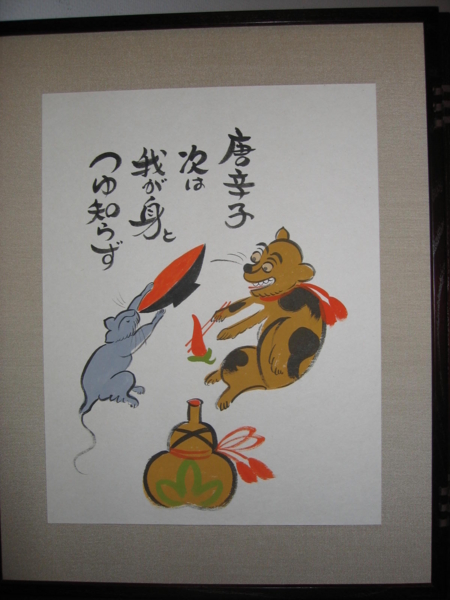 唐辛子
次は
我が身と
つゆ知らず